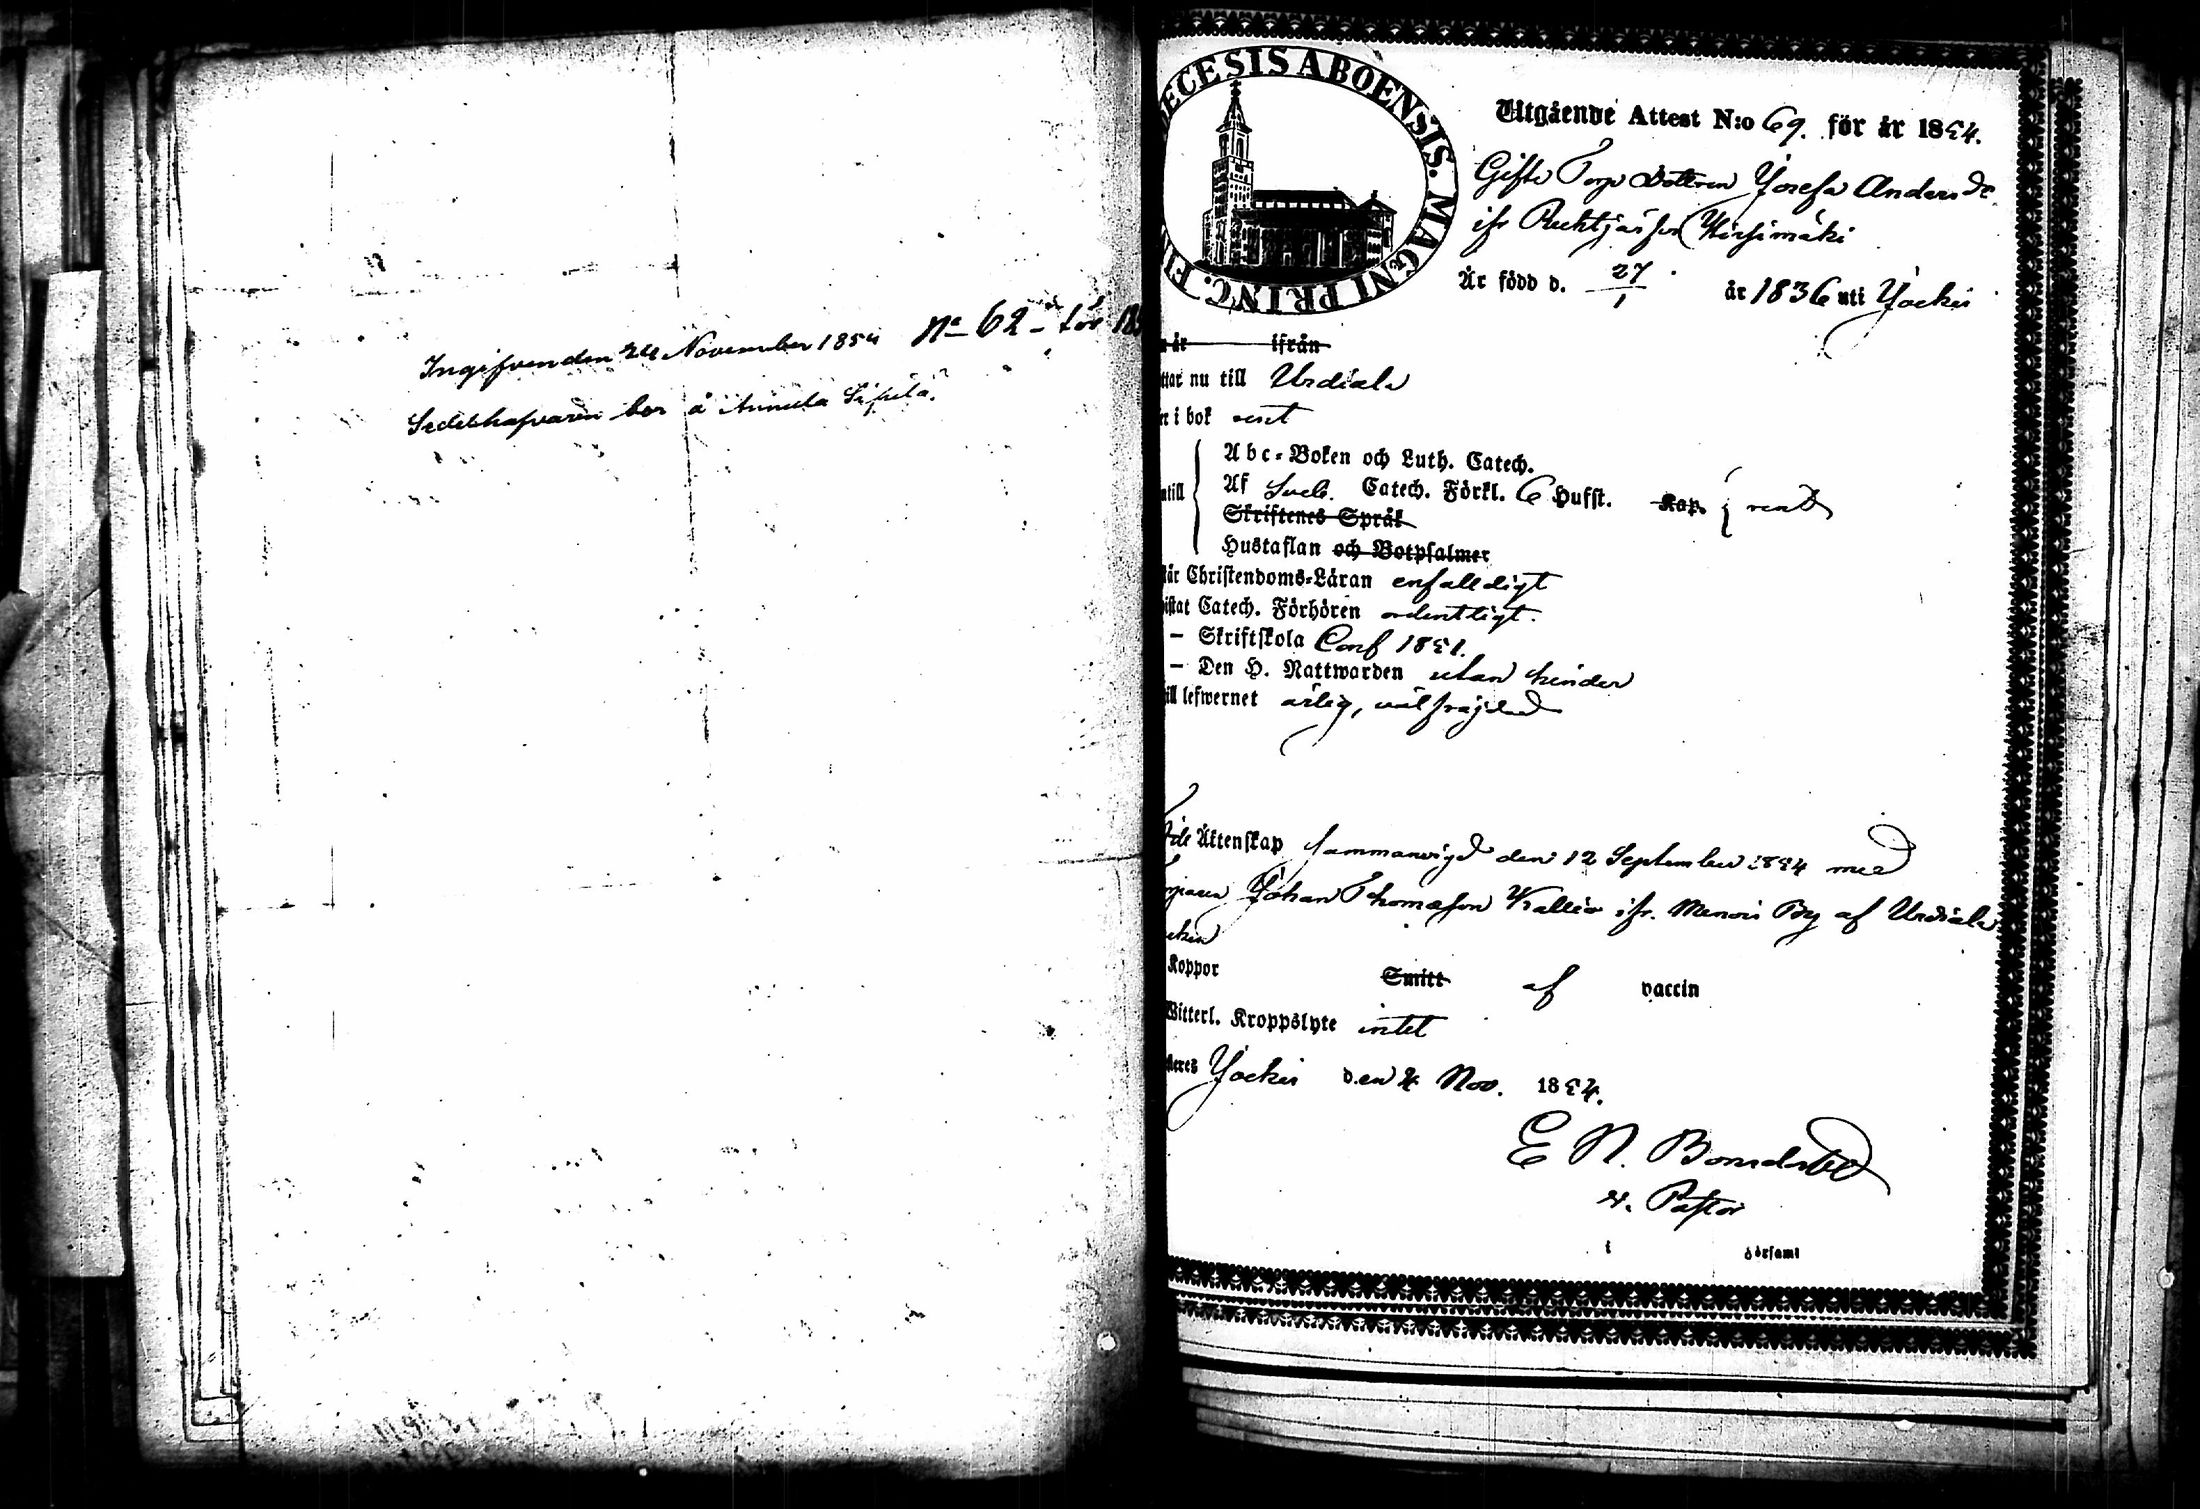 Ingifven den 24 November 1854 No 62 - för 185
Sedelhafvaren bor å Annula Sipilä.
ECESIS ABOENSIS. MAGNI PRINC. FI
Utgående Attest N:o 69. för år 1854.
Gifte Torp Dottren Josefa Anders Dr.
ifr Rehtijärfvi Hirsimäki
Är född d. 27/1 år 1836 uti Jockis
år ifrån
ttar nu till Urdiala
n i bok rent
Abc-Boken och Luth. Catech.
ntill Af Sveb. Catech. Förkl. 6 Hufst. Kap. rent
Skriftenes Språk
Hustaflan och Botpsalmer
tår Christendoms-Läran enfalldigt
istat Catech. Förhören ordentligt.
- Skriftskola Conf 1851.
- Den H. Nattwarden utan hinder
ill lefwernet ärlig, välfräjdad
Äktenskap sammanvigd den 12 September 1854 med
Johan Thomasson Kallio ifr. Menois By af Urdiala
Koppor Smitt af vaccin
Witterl. Kroppslyte intet
teres Jockis den 4 Nov. 1854.
E N. Bonsdorff
v. Pastor
i församl